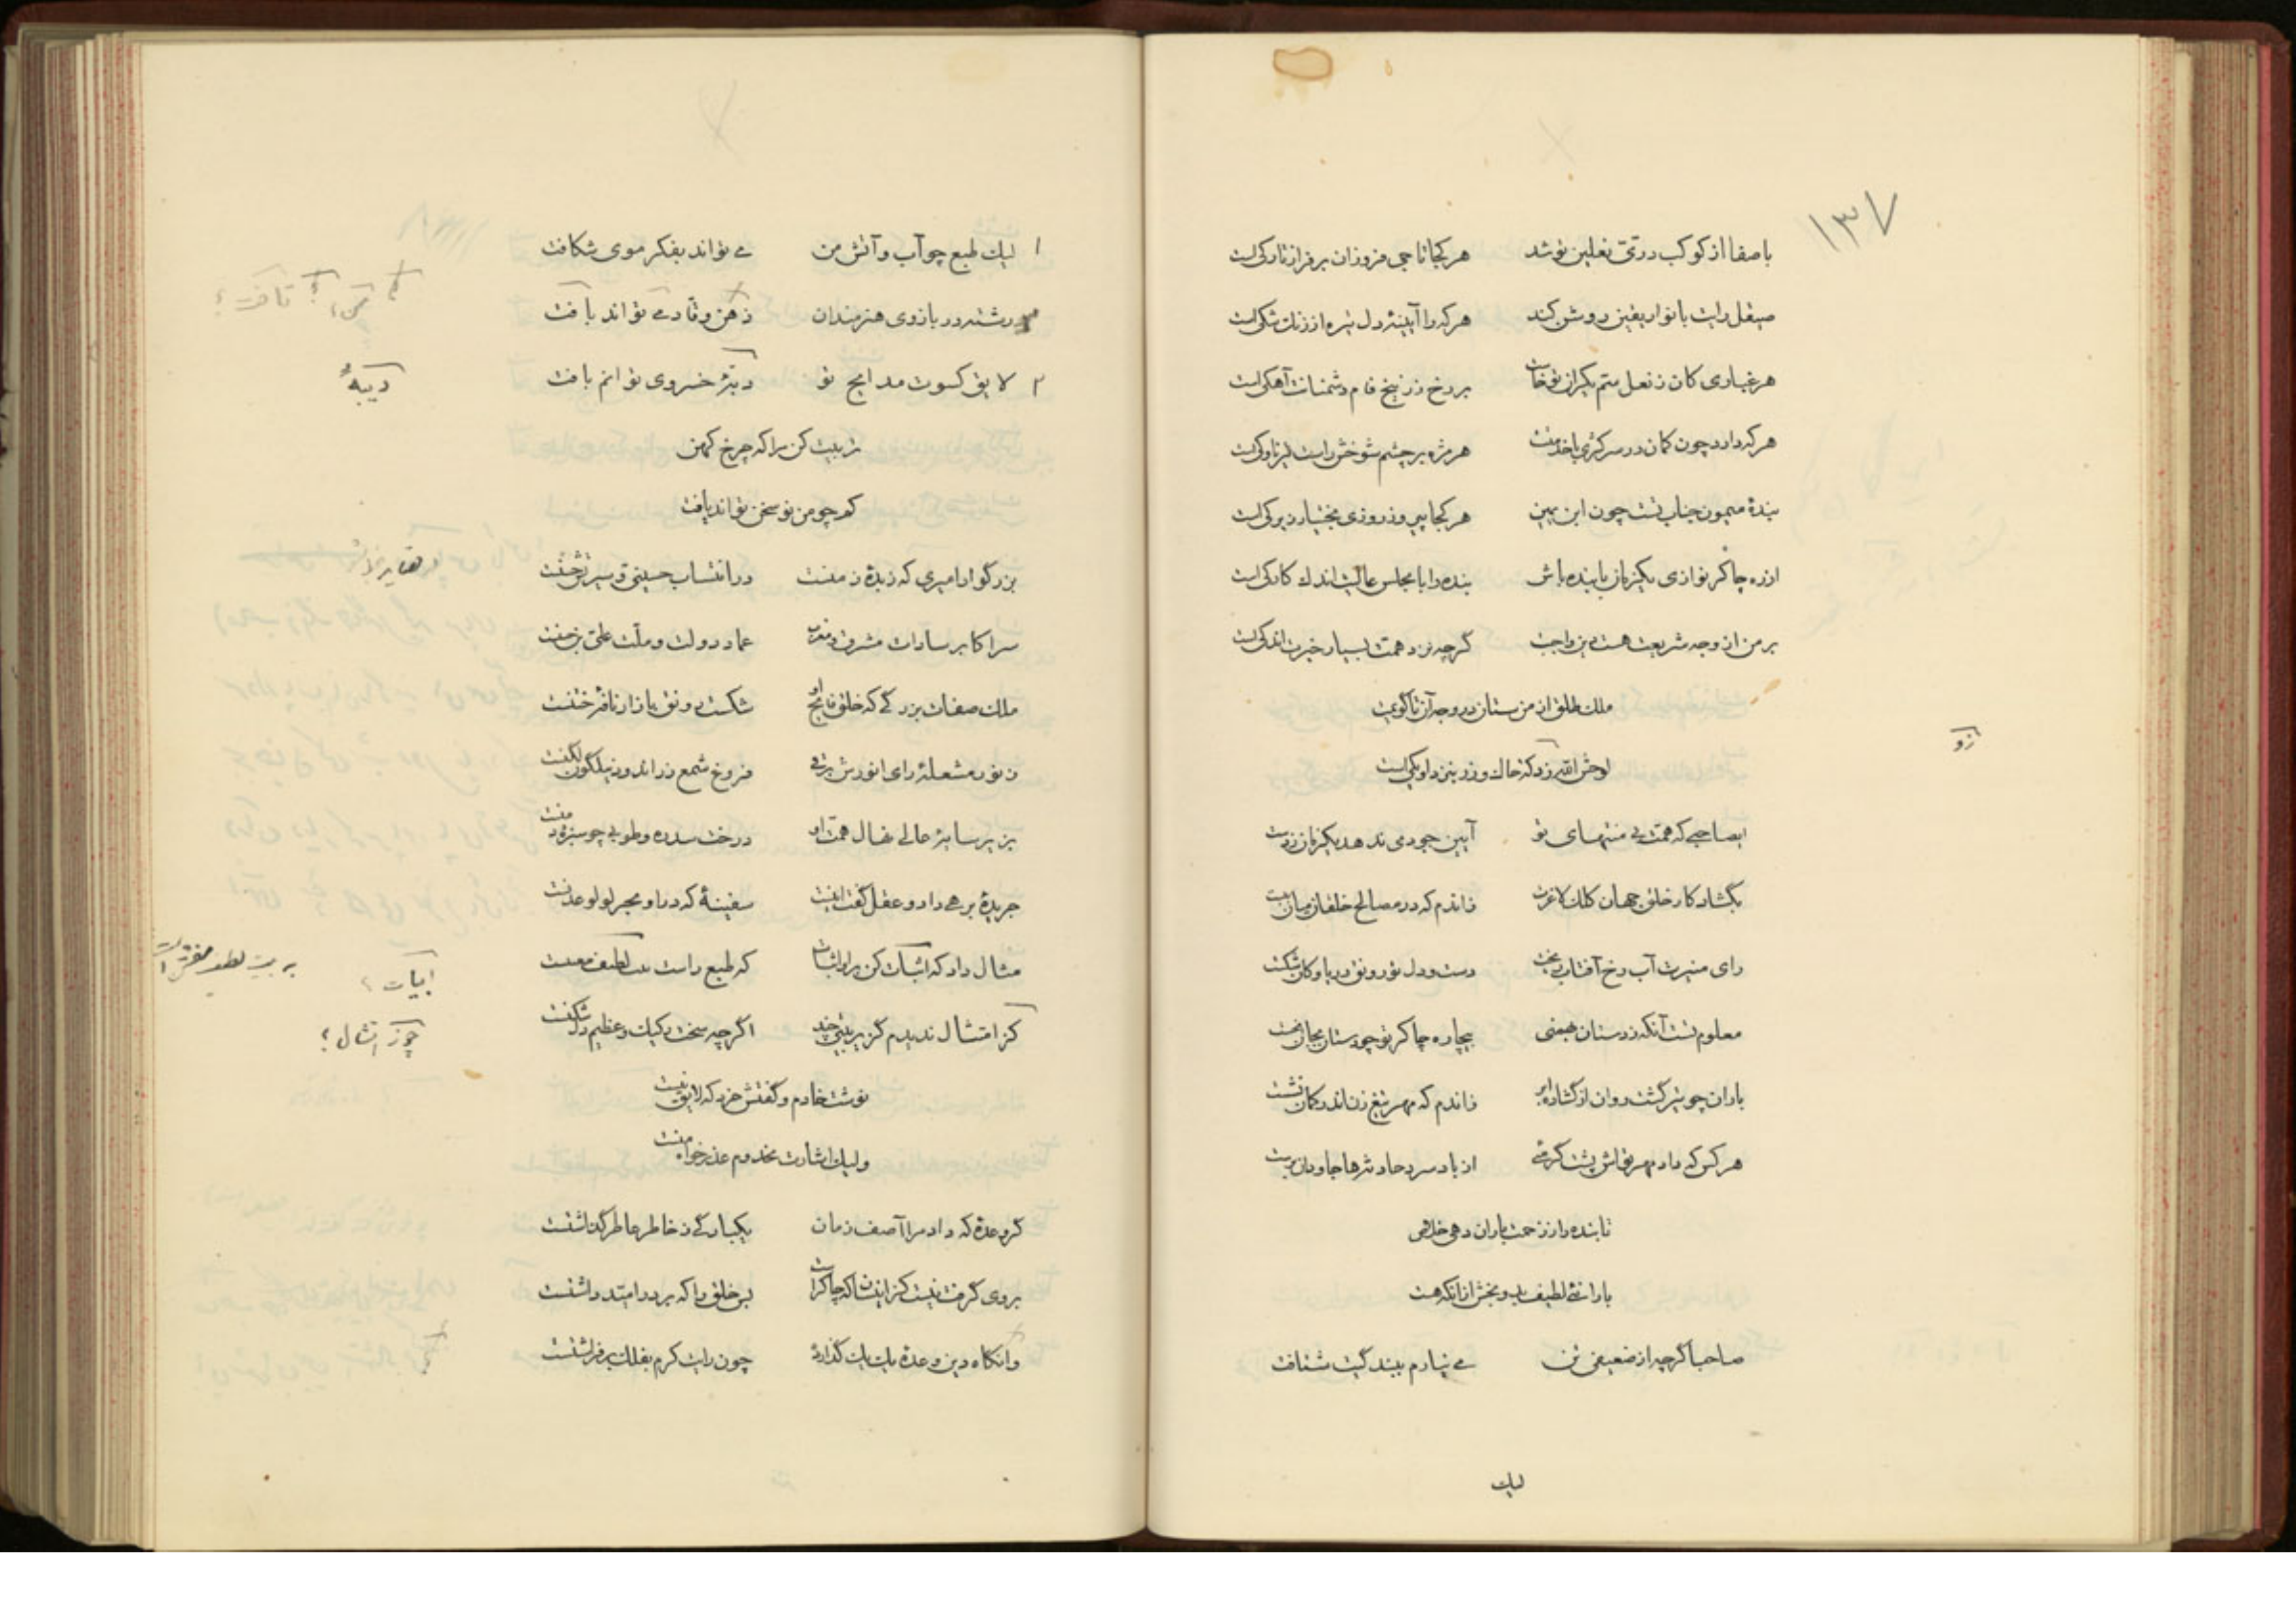 ۱۳۷
با صفا از کوکب دری نعلین تو شد هر کجا تاجی فروزان بر فراز تارکی است
صیقل رایت بانوار یقین روشن کند هر کرا آیینهٔ دل تیره از زنک شکی است
هر غباری کان ز نعل سم یکران تو خاست بر رخ زرنیخ فام دشمنانت آهکی است
هر که دارد چون کمان در سر کژی با خدمتت هر مژه بر چشم شوخش راست تیر ناوکی است
بندهٔ میمون جناب تست چون ابن یمین هر کجا پیروز روزی بختیار زیرکی است
از ره چاکر نوازی یکزمان با بنده باش بنده را با مجلس عالیت اندک کارکی است
بر من از وجه شریعت هست دین واجبت گرچه نزد همت بسیار خیرت اندکی است
ملک طلق از من ستان در وجه آن تا گویمت
لوحش الله زد که خاک و زر بنزد او یکی است
زو
ایصاحبی که همت بی منتهای تو آیین جود می ندهد یکزمان ز دست
بگشاد کار خلق جهان کلک لاغرت زاندم که در مصالح خلقان میان ببست
رای منیرت آب رخ آفتاب ریخت دست و دل تو رونق دریا و کان شکست
معلوم تست آنکه ز دستان بهمنی بیچاره چاکر تو چو دستان بجان بخست
باران چو تیر گشت روان از گشاد ابر زاندم که مهر تیغ زن اندر کمان نشست
هر کس که داد مهر تواش پشت گرمیی از باد سرد حادثها جاودان برست
تا بنده را ز زحمت باران دهی خلاص
بارانیی لطیف بدو بخش از آنکه هست
صاحبا گرچه از ضعیفی تن می نیارم ببندگیت شتافت
لیک
۱ لیک طبع چو آب و آتش من می تواند بفکر موی شکافت
۳ رشته در بازوی هنرمندان ذهن وقاد می تواند بافت
۲ لایق کسوت مدایح تو دیبهٔ خسروی توانم بافت
دیبهٔ
تربیت کن مرا که چرخ کهن
کم چو من نو سخن تواند یافت
بزرگوار امیری که زبدهٔ زمنست در انتساب حسینی و سیرتش حسنست
سر اکابر سادات مشرق و مغرب عماد دولت و ملت علی بن حسنست
ملک صفات بزرگی که خلق فایح او شکست رونق بازار نافهٔ ختنست
ز نور مشعلهٔ رای انورش برقی فروغ شمع زر اندود نیلگون لگنست
بزیر سایهٔ عالی نهال همت او درخت سدره و طوبی چو سبزهٔ دمنست
جریدهٔ برهی داد و عقل گفت اینست سفینهٔ که در او بحر لولو عدنست
مثال داد که اثبات کن در او ابیات که طبع راست بیت لطیف مفتنست
ابیات ؟
کز امتثال ندیدم گزیر بیتی چند اگرچه سخت رکیک و عظیم دل شکنست
جز امتثال ؟
نوشت خادم و گفتش خرد که لایق نیست
ولیک اشارت مخدوم عذر خواه منست
گر وعدهٔ که داد مرا آصف زمان یکبارگی ز خاطر عاطر گذاشتست
بروی گرفت نیست کز اینسان که چاکر است بس خلق را که بر در امید داشتست
وانگاه دین وعده یک بیک گذارده چون رایت کرم بفلک بر فراشتست